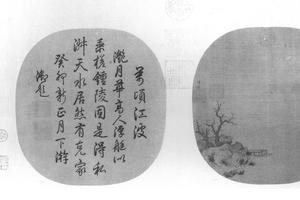 萬頃江波
瀲月華高人浮艇似
乘槎鍾陵固是得私
淑天水居然有克家
癸卯新正月下澣
御題